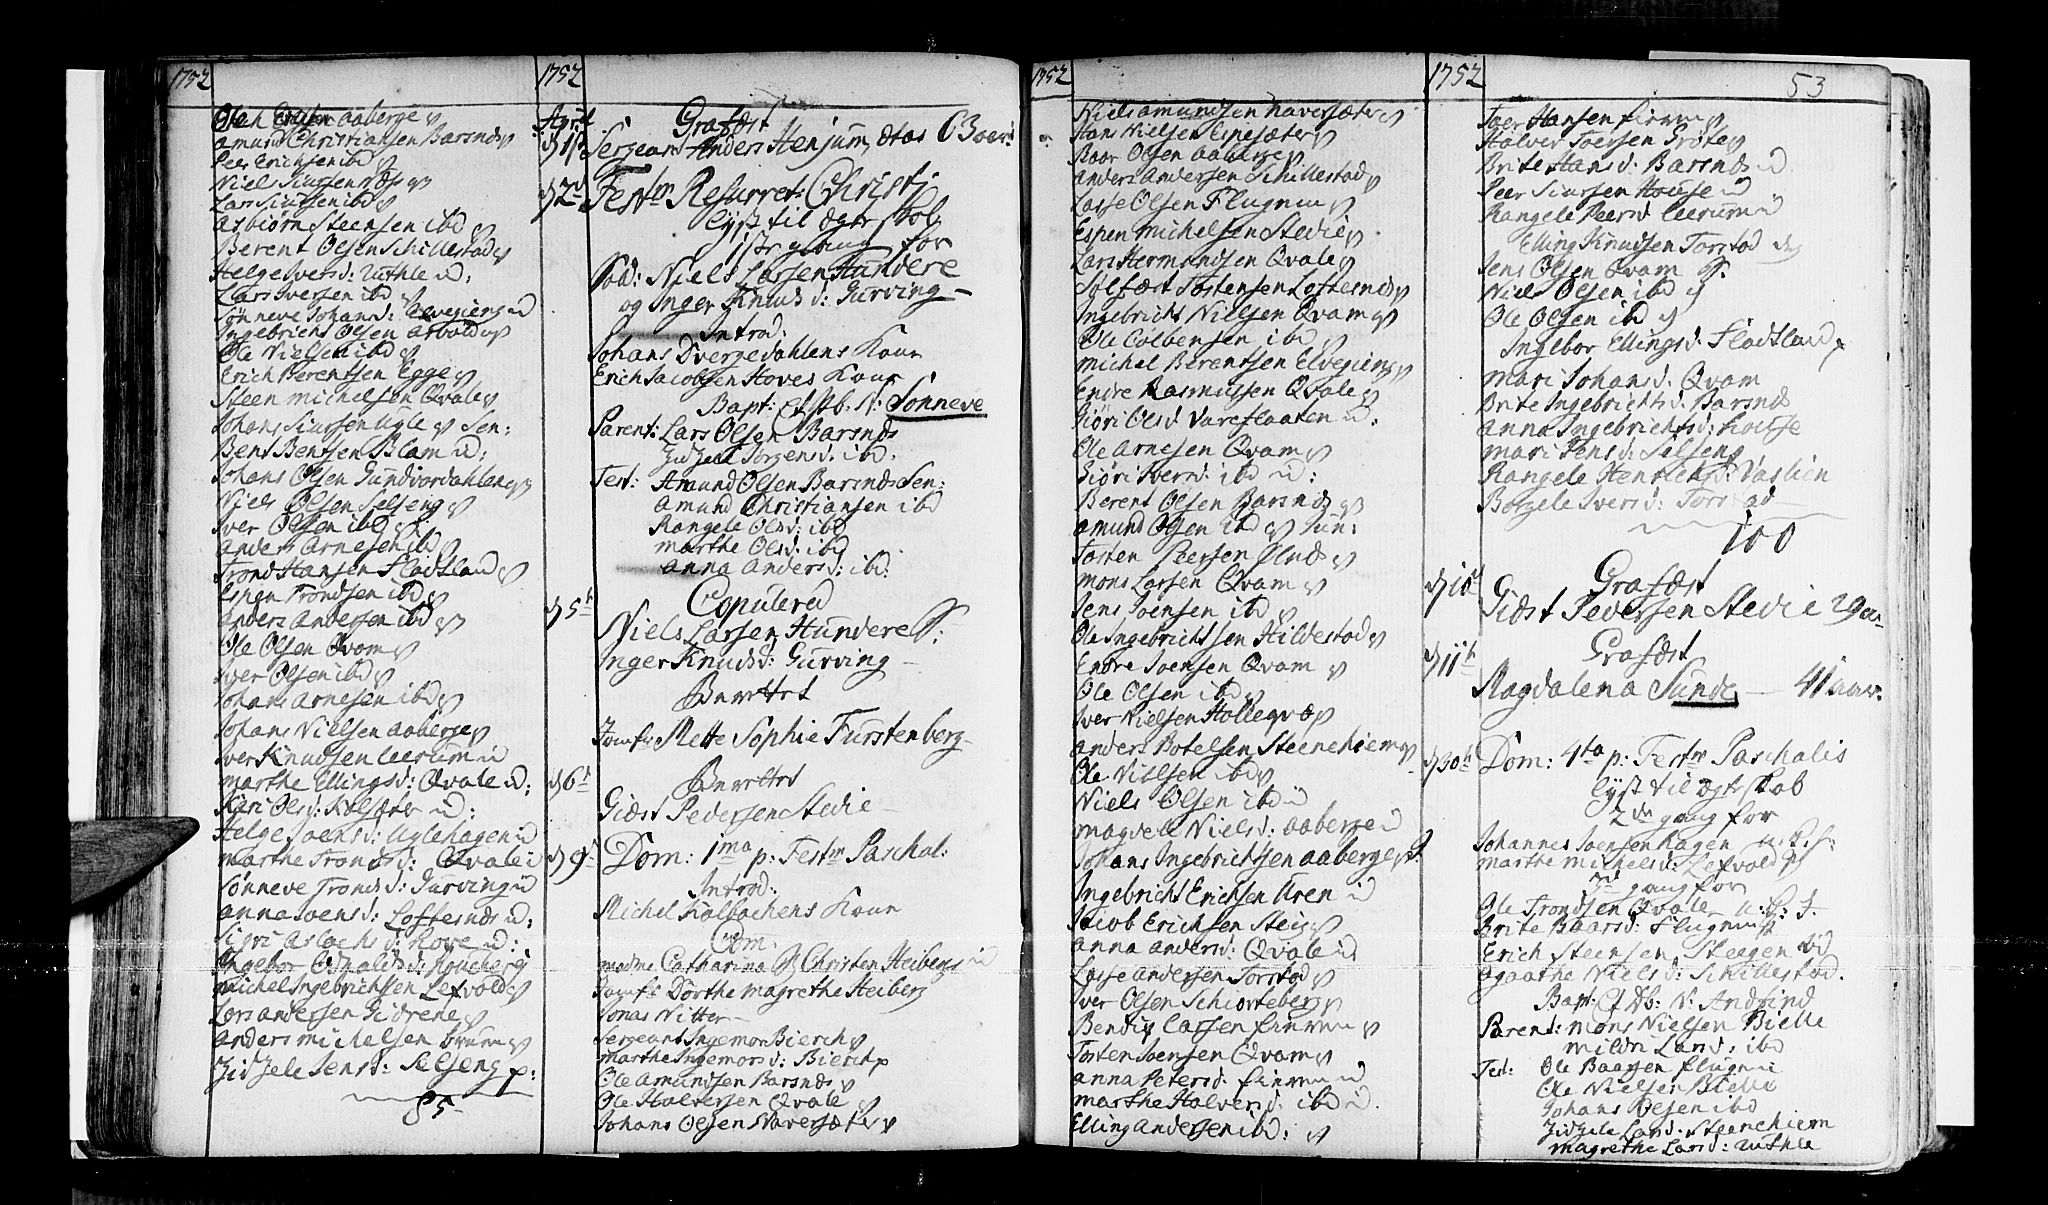 1752
Ole Erichsen Aaberge
Amund Christiansen Barsnæs
Peer Erichsen ibd
Niels Siursen Næs
Lars Siursen ibd
Asbiørn Steensen ibd
Berent Olsen Schillestad
Helge Ivers d: Uthle
Lars Iversen ibd
Sønneve Johans d: Elvegiens
Ingebricht Olsen Arbold
Ole Nielsen ibd
Erich Berentsen Egge
Steen Michelsen Qvale
Johans Siursen Ugle Sen:
Bent Bentsen Blam
Johans Olsen Gundvordahlen
Niels Olsen Selseng
Iver Olsen ibd
Anders Arnesen ibd
Trond Hansen Fladtland
Espen Trondsen ibd
Anders Andersen ibd
Ole Olsen Qvam
Iver Olsen ibd
Johans Arnesen ibd
Johans Nielsen Aaberge
Iver Knudsen Leerum
Marthe Ellings d: Qvale
Kari Ols d: Kolsæter
Helge Joens d: Uglehagen
Marthe Tronds d: Qvale
Sønneve Tronds d: Gurving
Anna Joens d: Loftesnæs
Sigri Aslachs d: Hove
Ingebor Oswalds d: Roneberg
Michel Ingebrichsen Lefvold
Lars Andersen Gidrene
Anders Michelsen Bruum
Zidzele Jens d: Selseng
85
1752
April
d 1st
Grafæst
Sergeant Anders Henjum, ætas 63 aar
d 2d
Festm Resurrect: Christj
lyst til ægte skab
1ste gang for
Sod: Niels Larsen Hundere
og Inger Knuds d: Gurving
Introd:
Johans Dvergedahlens Kone
Erich Jacobsen Hoves Kone
Bapt: Et Db. N: Sønneve
Parent: Lars Olsen Barsnæs
Zidzele Jorgens d: ibd.
Test: Amund Olsen Barsnæs Sen:
Amund Christiansen ibd
Rangele Ols d: ibd
Marthe Ols d: ibd
Anna Anders d: ibd:
d 5th
Copulered
Niels Larsen Hundere S:
Inger Knuds d: Gurving
Berettet
Jomfr Mette Sophie Furstenberg
d 6t
Berettet
Giæst Pedersen Stedie
d 9t
Dom: 1ma p: Festm Paschal:
Introd:
Michel Kalbachens Kone
Com.
Madme Catharina Sl Christen Heibergs
Jomfr Dorthe Magrethe Heiberg
Jonas Nitter
Sergeant Ingemon Bierch
Marthe Ingemors d: Bierch
Ole Amundsen Barsnæs
Ole Halversen Qvale
Johans Olsen Naversæter
1752
Niels Amundsen Naversæter
Hans Nielsen Espesæter
Roar Olsen Aaberge
Anders Andersen Schillestad
Lasse Olsen Flugum
Espen Michelsen Stedie
Lars Hermandsen Qvale
Solfæst Tostensen Loftesnæs
Ingebricht Nielsen Qvam
Ole Colbensen ibd
Michel Berentsen Elvegiens
Endre Rasmussen Qvale
Giøri Ols d Vareflaaten
Ole Arnesen Qvam
Giøri Ivers d: ibd
Berent Olsen Barsnæs
Amund Olsen ibd Jun:
Tosten Peersen Slinde
Mons Larsen Qvam
Jens Joensen ibd
Ole Ingebrichtsen Hildestad
Endre Joensen Qvam
Ole Olsen ibd
Iver Nielsen Holleqvæ
Anders Botelsen Steenehiem
Ole Nielsen ibd
Niels Olsen ibd
Magdele Niels d: Aaberge
Johans Ingebrichtsen Aaberge
Ingebricht Erichsen Uren
Jacob Erichsen Steie
Anna Anders d: Qvale
Lasse Andersen Torstad
Iver Olsen Schiorteberg
Bendix Larsen Eirum
Tosten Joensen Qvam
Anna Peters d: Eirum
Marthe Halvers d: ibd
Elling Andersen ibd:
1752
53
Joer Hansen Eirum
Halvor Joersen Grote
Brite Hans d: Barsnæs
Peer Siursen House
Rangele Peers d: Leerum
Elling Knudsen Torstad
Jens Olsen Qvam
Niels Olsen ibd
Ole Olsen ibd
Ingebor Ellings d: Fladtland
Mari Johans d: Qvam
Brite Ingebrichts d: Barsnæs
Anna Ingebrichts d:
Mari Jens d: Selseng
Rangele Henrichs d: Vaslien
Borgele Ivers d: Torstad
100
d 10d
Grafæst
Giæst Pedersen Stedie 29 aar
d 11th
Grafæst
Magdalena Sunde — 41 aar.
d 30th
Dom: 4ta p: Festm Paschalis
lyst til ægteskab
2den gang for
Johannes Joensen Hagen
Marthe Michels d: Lefvold
3d gang for
Ole Trondsen Qvale
Brite Baars d: Flugum
Erich Steensen Steegen
Agaathe Niels d: Schillestad.
Bapt: Et Db: N: Andrind
Parent: Mons Nielsen Bielle
Mildri Lars d: ibd
Test: Ole Baarsen Flugum
Ole Nielsen Bielle
Johans Olsen ibd
Zidzele Lars d: Steenehiem
Magrethe Lars d: Uthle